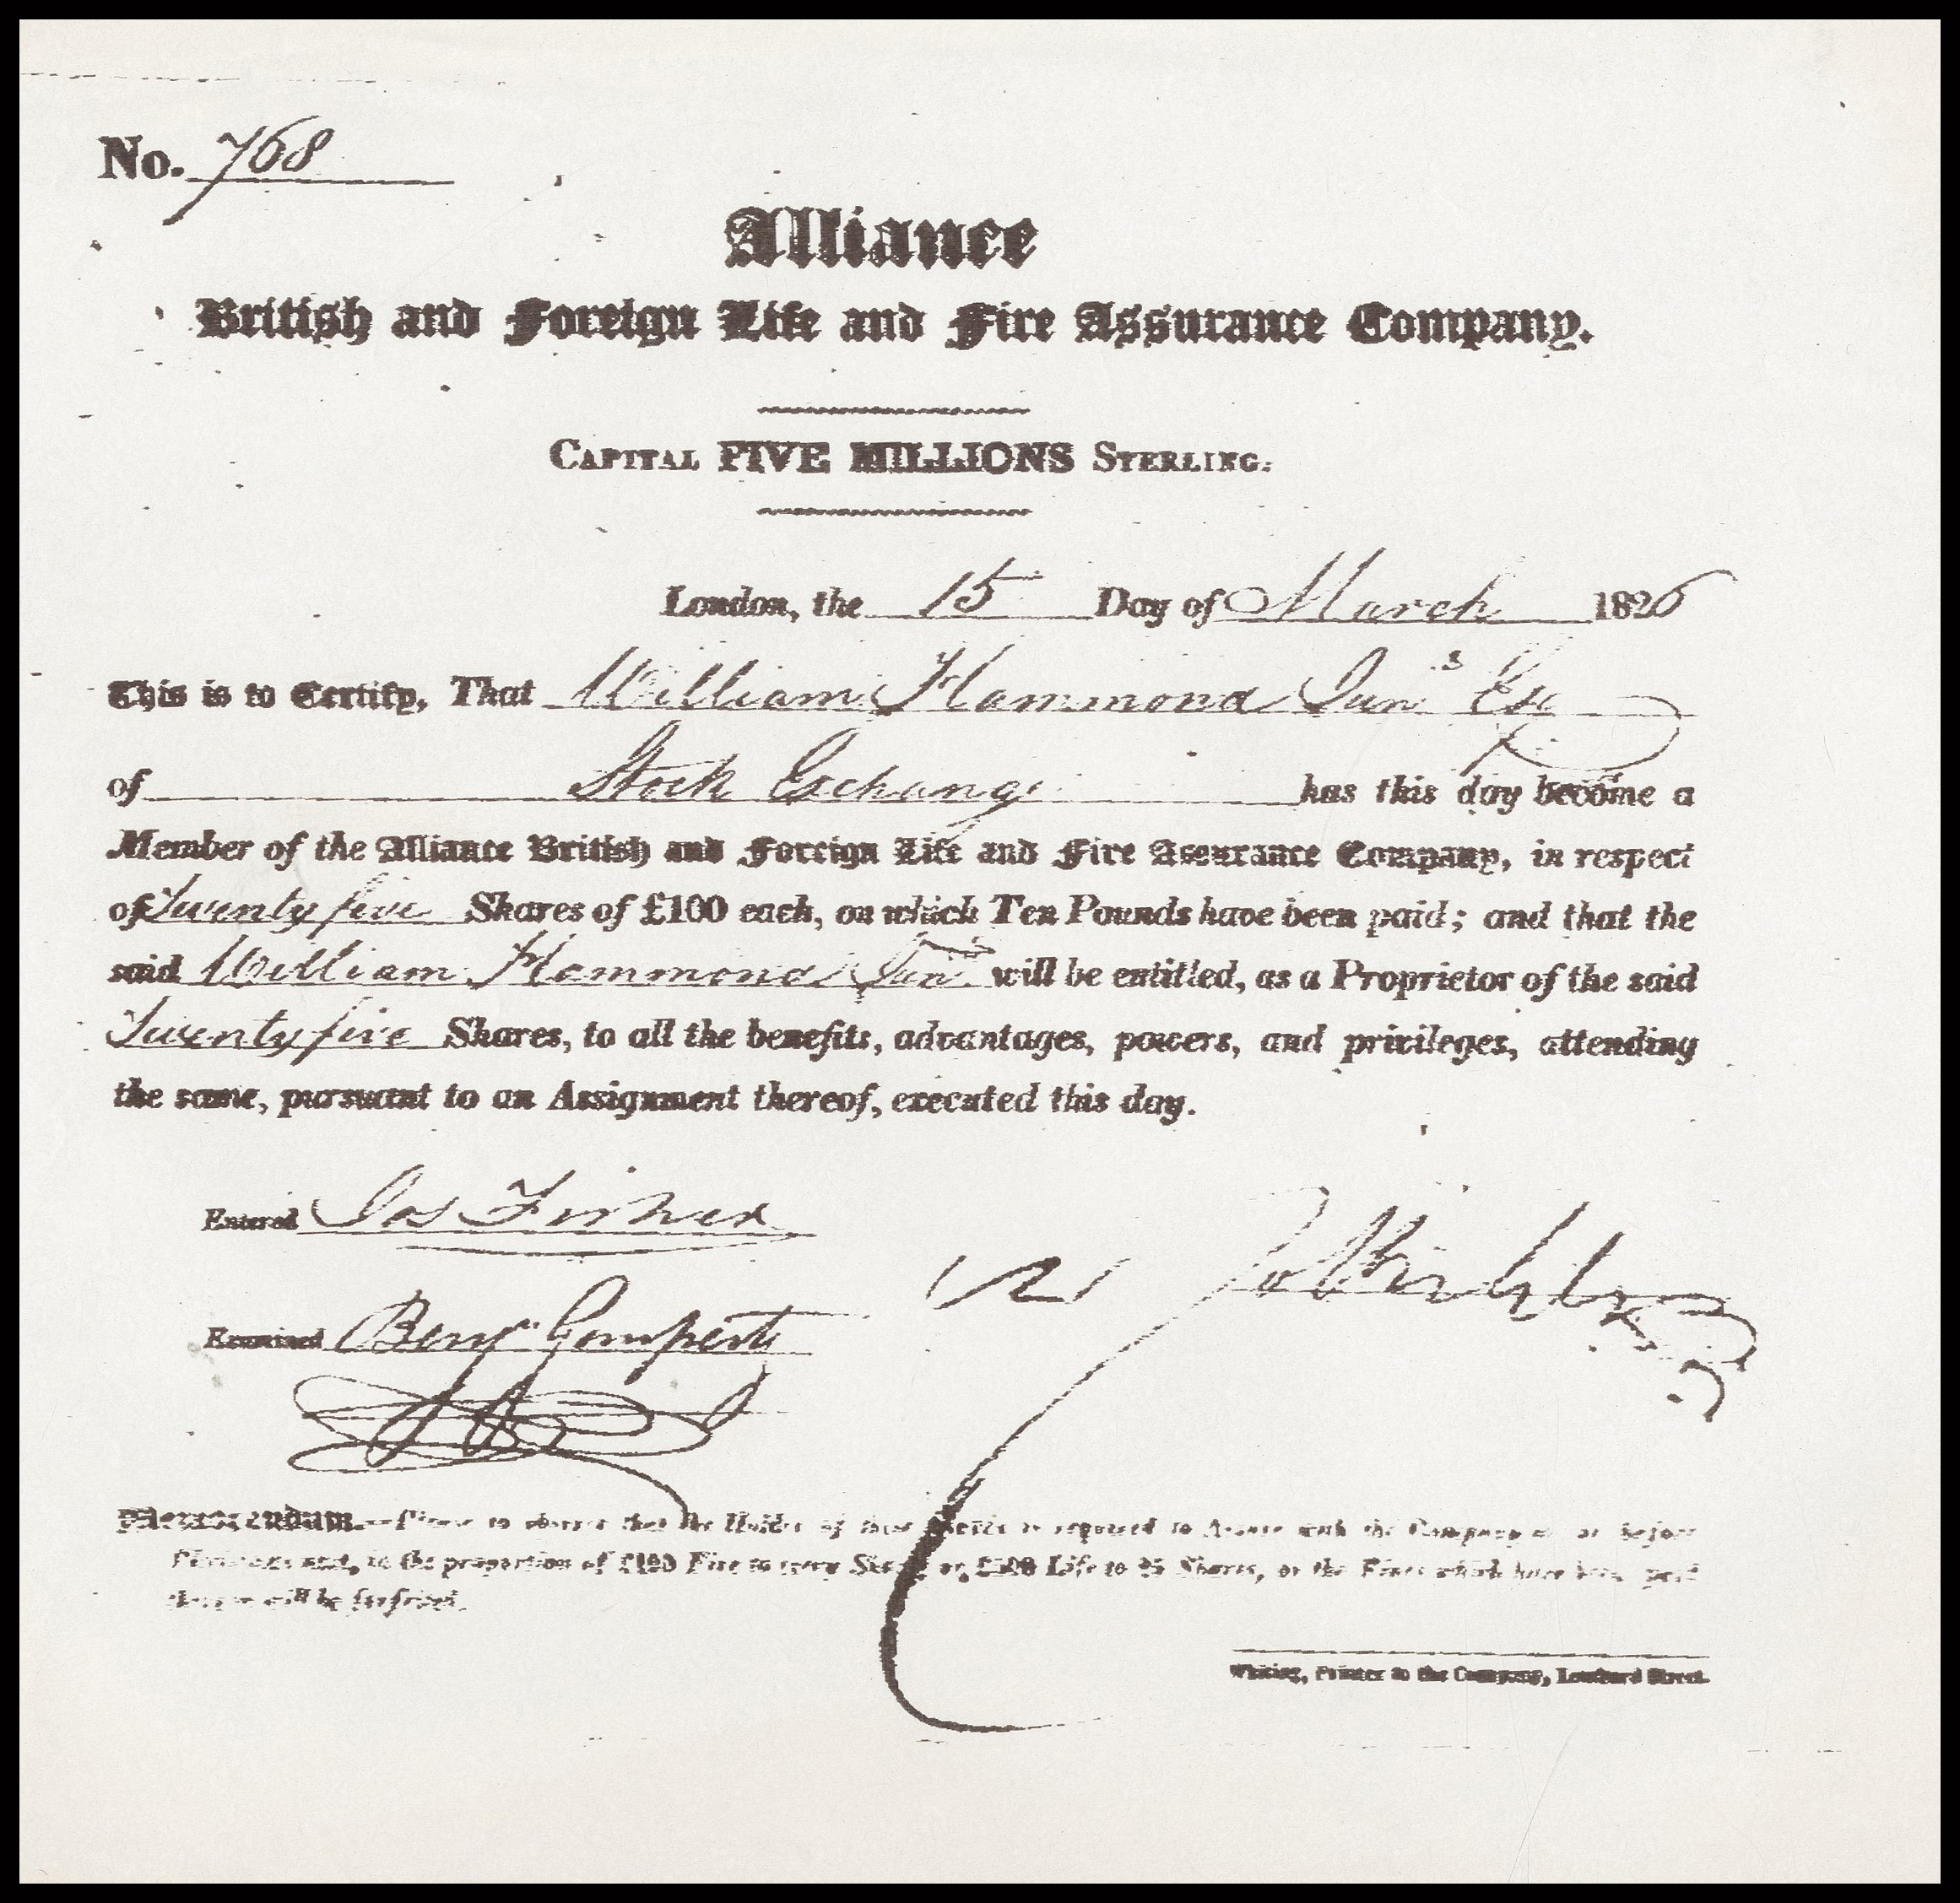 No. 768
Alliance
British and Foreign Life and Fire Assurance Company.
CAPITAL FIVE MILLIONS STERLING.
London, the 15 Day of March 1826
This is to Certify, That William Hammond Junr Esq
of Stock Exchange has this day become a
Member of the Alliance British and Foreign Life and Fire Assurance Company, in respect
of Twenty five Shares of £100 each, on which Ten Pounds have been paid; and that the
said William Hammond Junr will be entitled, as a Proprietor of the said
Twenty five Shares, to all the benefits, advantages, powers, and privileges, attending
the same, pursuant to an Assignment thereof, executed this day.
Entered Jos
Examined Benjn Gompertz
Memorandum.— Please to observe that the Holder of these Shares is required to Assure with the Company on or before
Christmas next, in the proportion of £100 Fire to every Share, or £500 Life to 25 Shares, or the Fines which have been paid
thereon will be forfeited.
Whiting, Printer to the Company, Lombard Street.